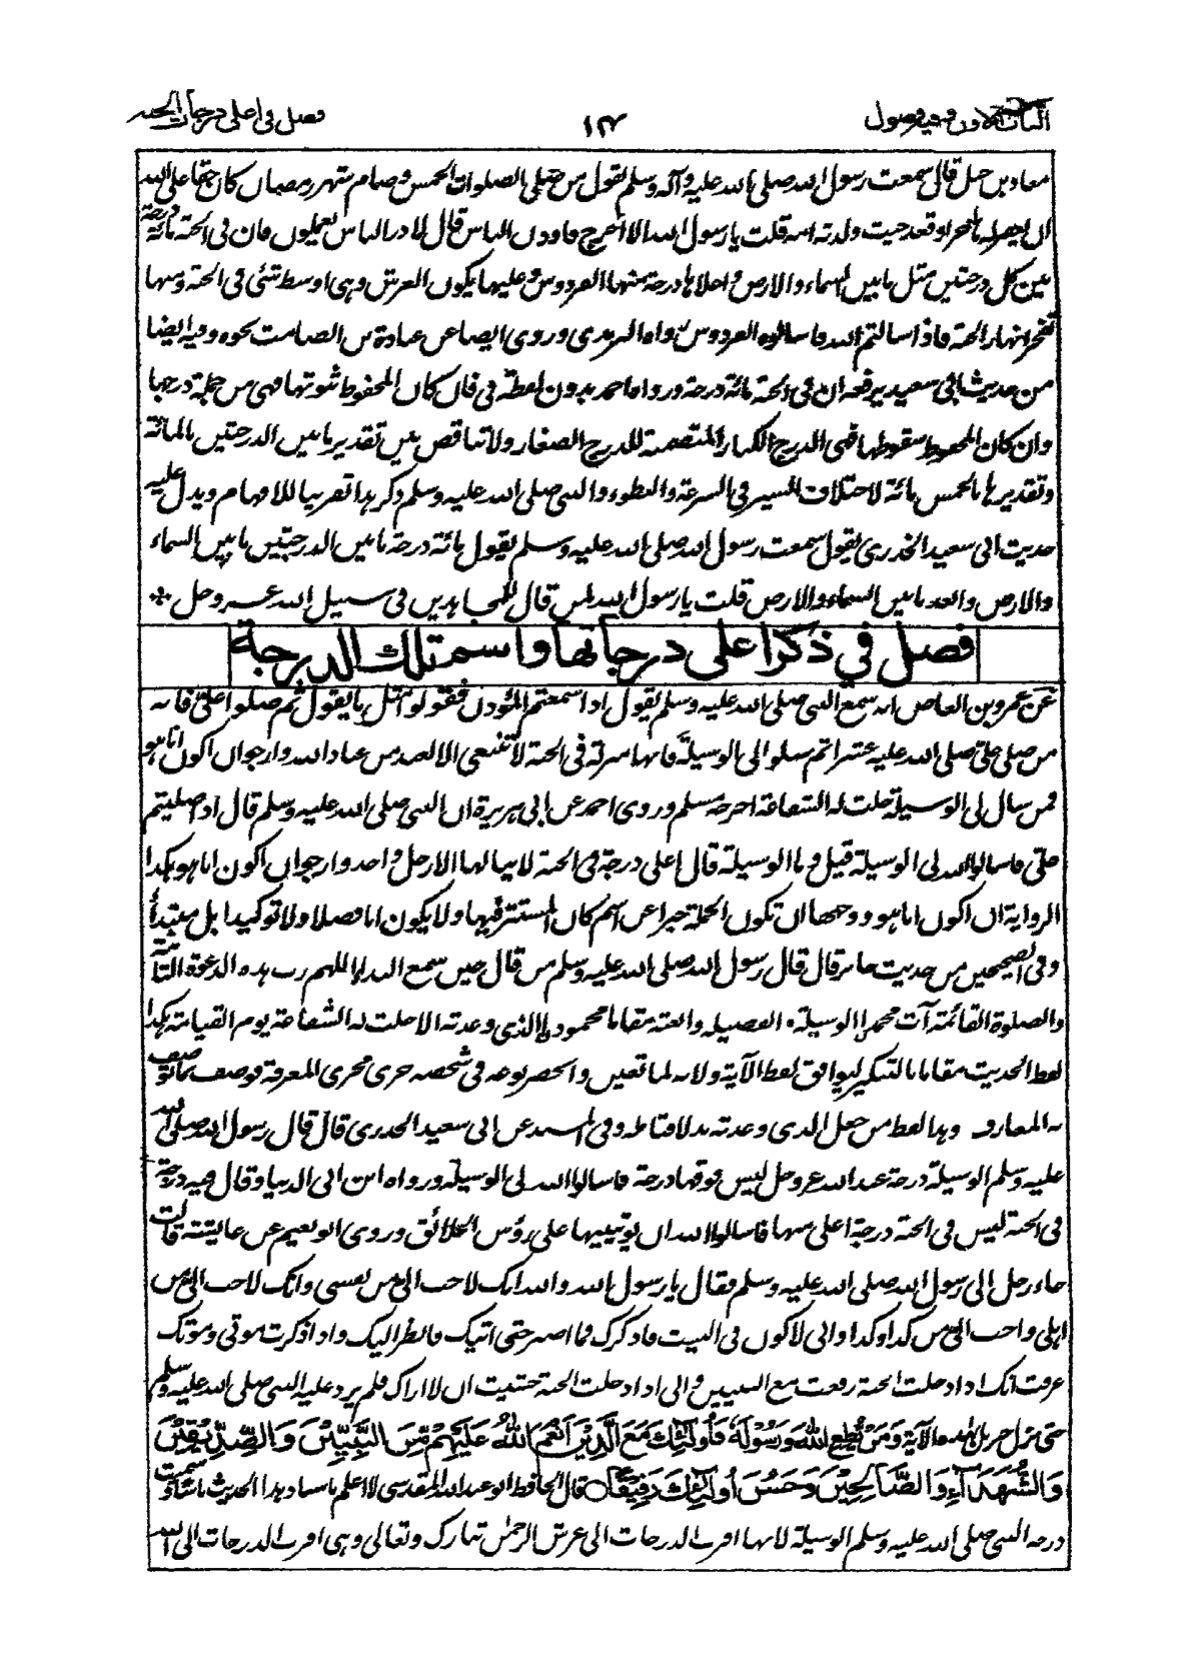 الباب الاول وفيه فصول
١٢٣
فصل فى اعلى درجات الجنة
معاذ بن جبل قال سمعت رسول الله صلى الله عليه وآله وسلم يقول من صلى الصلوات الخمس وصام شهر رمضان كان حقا على الله
ان يغفر له هاجر او قعد حيث ولدته امه قلت يا رسول الله الا اخرج فاوذن الناس قال لا ذر الناس يعملون فان فى الجنة مائة درجة
بين كل درجتين مثل ما بين السماء والارض واعلاها درجة منها الفردوس وعليها يكون العرش وهى اوسط شئ فى الجنة ومنها
تفجر انهار الجنة فاذا سالتم الله فاسالوه الفردوس رواه الترمذى وروى ايضا عن عبادة بن الصامت نحوه وفيه ايضا
من حديث ابى سعيد يرفعه ان فى الجنة مائة درجة ورواه احمد بدون لفظة فى فان كان المحفوظ ثبوتها فهى من جملة درجها
وان كان المحفوظ سقوطها فهى الدرج الكبار المتضمنة للدرج الصغار ولا تناقض بين تقدير ما بين الدرجتين بالمائة
وتقديرها بالخمس مائة لاختلاف السير فى السرعة والبطوء والنبى صلى الله عليه وسلم ذكر هذا تقريبا للافهام ويدل عليه
حديث ابى سعيد الخدرى يقول سمعت رسول الله صلى الله عليه وسلم يقول مائة درجة ما بين الدرجتين ما بين السماء
والارض وابعد ما بين السماء والارض قلت يا رسول الله لمن قال للمجاهدين فى سبيل الله عز وجل *
فصل في ذكر اعلى درجاتها واسم تلك الدرجة
عن عمرو بن العاص انه سمع النبى صلى الله عليه وسلم يقول اذا سمعتم المؤذن فقولوا مثل ما يقول ثم صلوا على فانه
من صلى على صلى الله عليه عشرا ثم سلوا لى الوسيلة فانها منزلة فى الجنة لا تنبغى الا لعبد من عباد الله وارجو ان اكون انا هو
فمن سال لى الوسيلة حلت له الشفاعة اخرجه مسلم وروى احمد عن ابى هريرة ان النبى صلى الله عليه وسلم قال اذا صليتم
على فاسالوا الله لى الوسيلة قيل وما الوسيلة قال اعلى درجة فى الجنة لا ينالها الا رجل واحد وارجو ان اكون انا هو هكذا
الرواية ان اكون انا هو ووجهها ان تكون الجملة خبرا عن اسم كان المستتر فيها ولا يكون انا فصلا ولا توكيدا بل مبتدأ
وفى الصحيحين من حديث جابر قال قال رسول الله صلى الله عليه وسلم من قال حين سمع النداء اللهم رب هذه الدعوة التامة
والصلوة القائمة آت محمدا الوسيلة والفضيلة وابعثه مقاما محمودا الذى وعدته الا حلت له الشفاعة يوم القيامة هكذا
لفظ الحديث مقاما بالتنكير ليوافق لفظ الآية ولانه لما تعين وانحصر نوعه فى شخصه جرى مجرى المعرفة فوصف بما توصف
به المعارف وهذا الطف من جعل الذى وعدته بدلا فتامله وفى المسند عن ابى سعيد الخدرى قال قال رسول الله صلى الله
عليه وسلم الوسيلة درجة عند الله عز وجل ليس فوقها درجة فاسالوا الله لى الوسيلة ورواه ابن ابى الدنيا وقال فيه درجة
فى الجنة ليس فى الجنة درجة اعلى منها فاسالوا الله ان يؤتينيها على رؤس الخلائق وروى ابو نعيم عن عائشة قالت
جاء رجل الى رسول الله صلى الله عليه وسلم فقال يا رسول الله والله انك لاحب الى من نفسى وانك لاحب الى من
اهلى واحب الى من كذا وكذا وانى لاكون فى البيت فاذكرك فما اصبر حتى اتيك فانظر اليك واذا ذكرت موتى وموتك
عرفت انك اذا دخلت الجنة رفعت مع النبيين وانى اذا دخلت الجنة خشيت ان لا اراك فلم يرد عليه النبى صلى الله عليه وسلم
حتى نزل جبريل بهذه الآية وَمَنْ يُطِعِ اللهَ وَرَسُوْلَهٗ فَأُولٰئِكَ مَعَ الَّذِيْنَ اَنْعَمَ اللهُ عَلَيْهِمْ مِّنَ النَّبِيِّيْنَ وَالصِّدِّيْقِيْنَ
وَالشُّهَدَآءِ وَالصَّالِحِيْنَ وَحَسُنَ اُولٰئِكَ رَفِيْقًا ○ قال الحافظ ابو عبد الله المقدسى لا اعلم باسناد هذا الحديث باسا وسميت
درجة النبى صلى الله عليه وسلم الوسيلة لانها اقرب الدرجات الى عرش الرحمن تبارك وتعالى وهى اقرب الدرجات الى الله